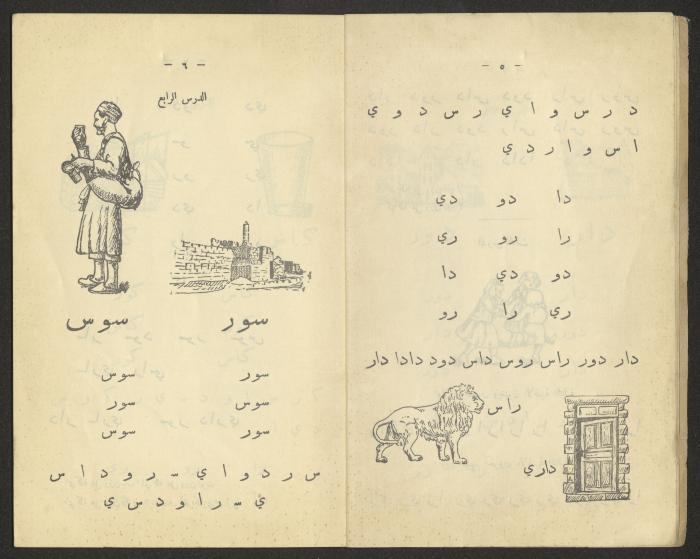 - ٥ -
د ر س و ا ي ر س د و ي
ا س و ا ر د ي
دا دو دي
را رو ري
دو دي دا
ري را رو
دار دور راس روس داس دود دادا دار
راس
داري
- ٦ -
الدرس الرابع
سور سوس
سور سوس
سوس سور
سور سوس
س ر د و ا ي سـ ر و د ا س
ي سـ ر ا و د س ي